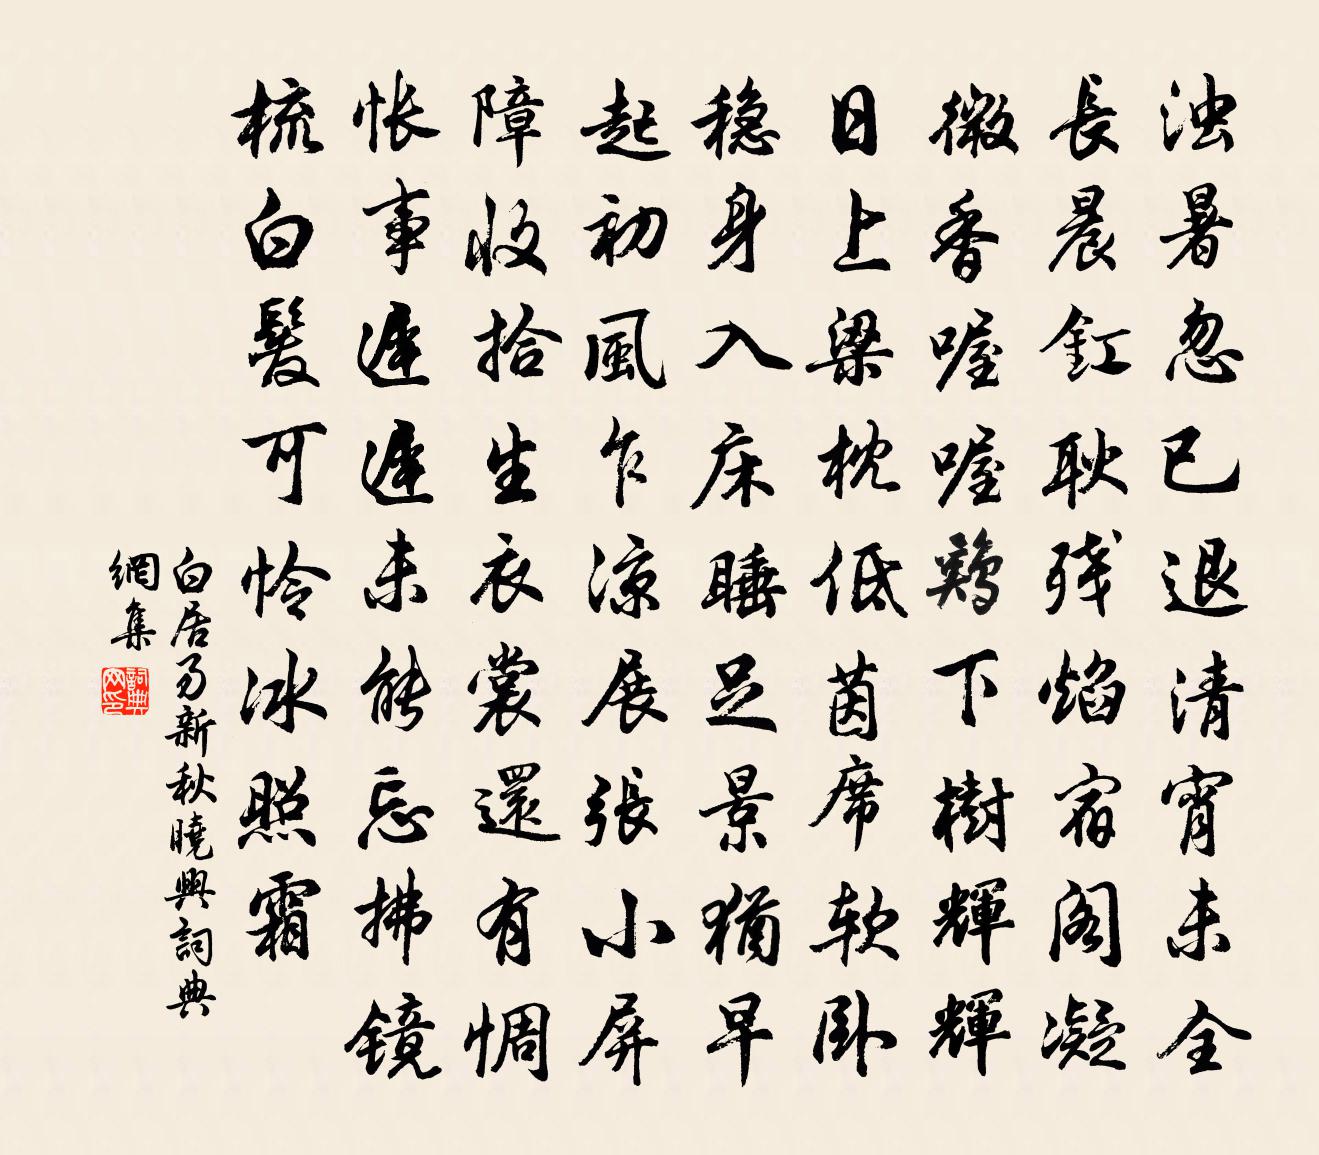 浊暑忽已退清宵未全
長晨釭耿残焰宿阁凝
微香喔喔鷄下樹輝輝
日上梁枕低茵席软卧
稳身入床睡足景猶早
起初風乍涼展張小屏
障收拾生衣裳還有惆
怅事遲遲未能忘拂镜
梳白髮可怜冰照霜
白居易新秋曉興詞典
網集
詞典网印